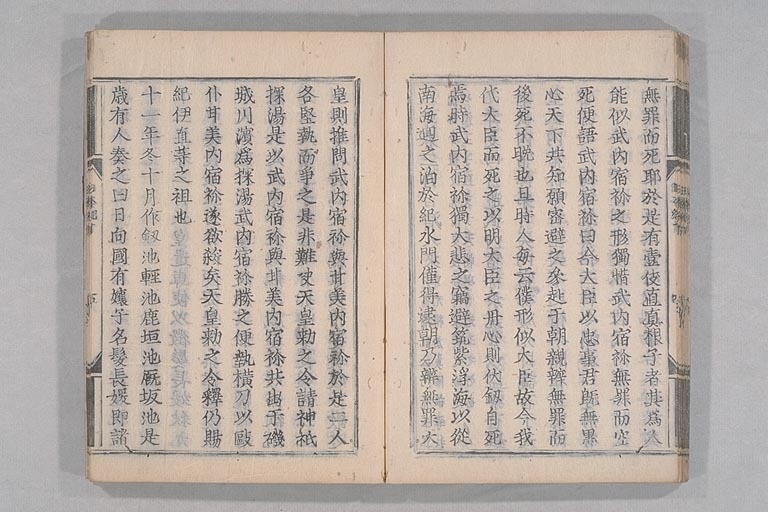 無罪而死耶於是有壹伎直真根子者其為人
能似武內宿祢之形獨惜武內宿祢無罪而空
死便語武內宿祢曰今大臣以忠事君既無黒
心天下共知願密避之参赴于朝親辨無罪而
後死不晩也且時人毎云僕形似大臣故今我
代大臣而死之以明大臣之丹心則伏釼自死
焉時武內宿祢獨大悲之竊避筑紫浮海以從
南海廻之泊於紀水門僅得逮朝乃辨無罪天
皇則推問武內宿祢與甘美內宿祢於是二人
各堅執而爭之是非難决天皇勅之令請神祇
探湯是以武內宿祢與甘美內宿祢共出于磯
城川濱為探湯武內宿祢勝之便執横刀以毆
仆甘美內宿祢遂欲殺矣天皇勅之令釋仍賜
紀伊直等之祖也
十一年冬十月作釼池輕池鹿垣池厩坂池是
歳有人奏之曰日向國有孃子名髮長媛即諸